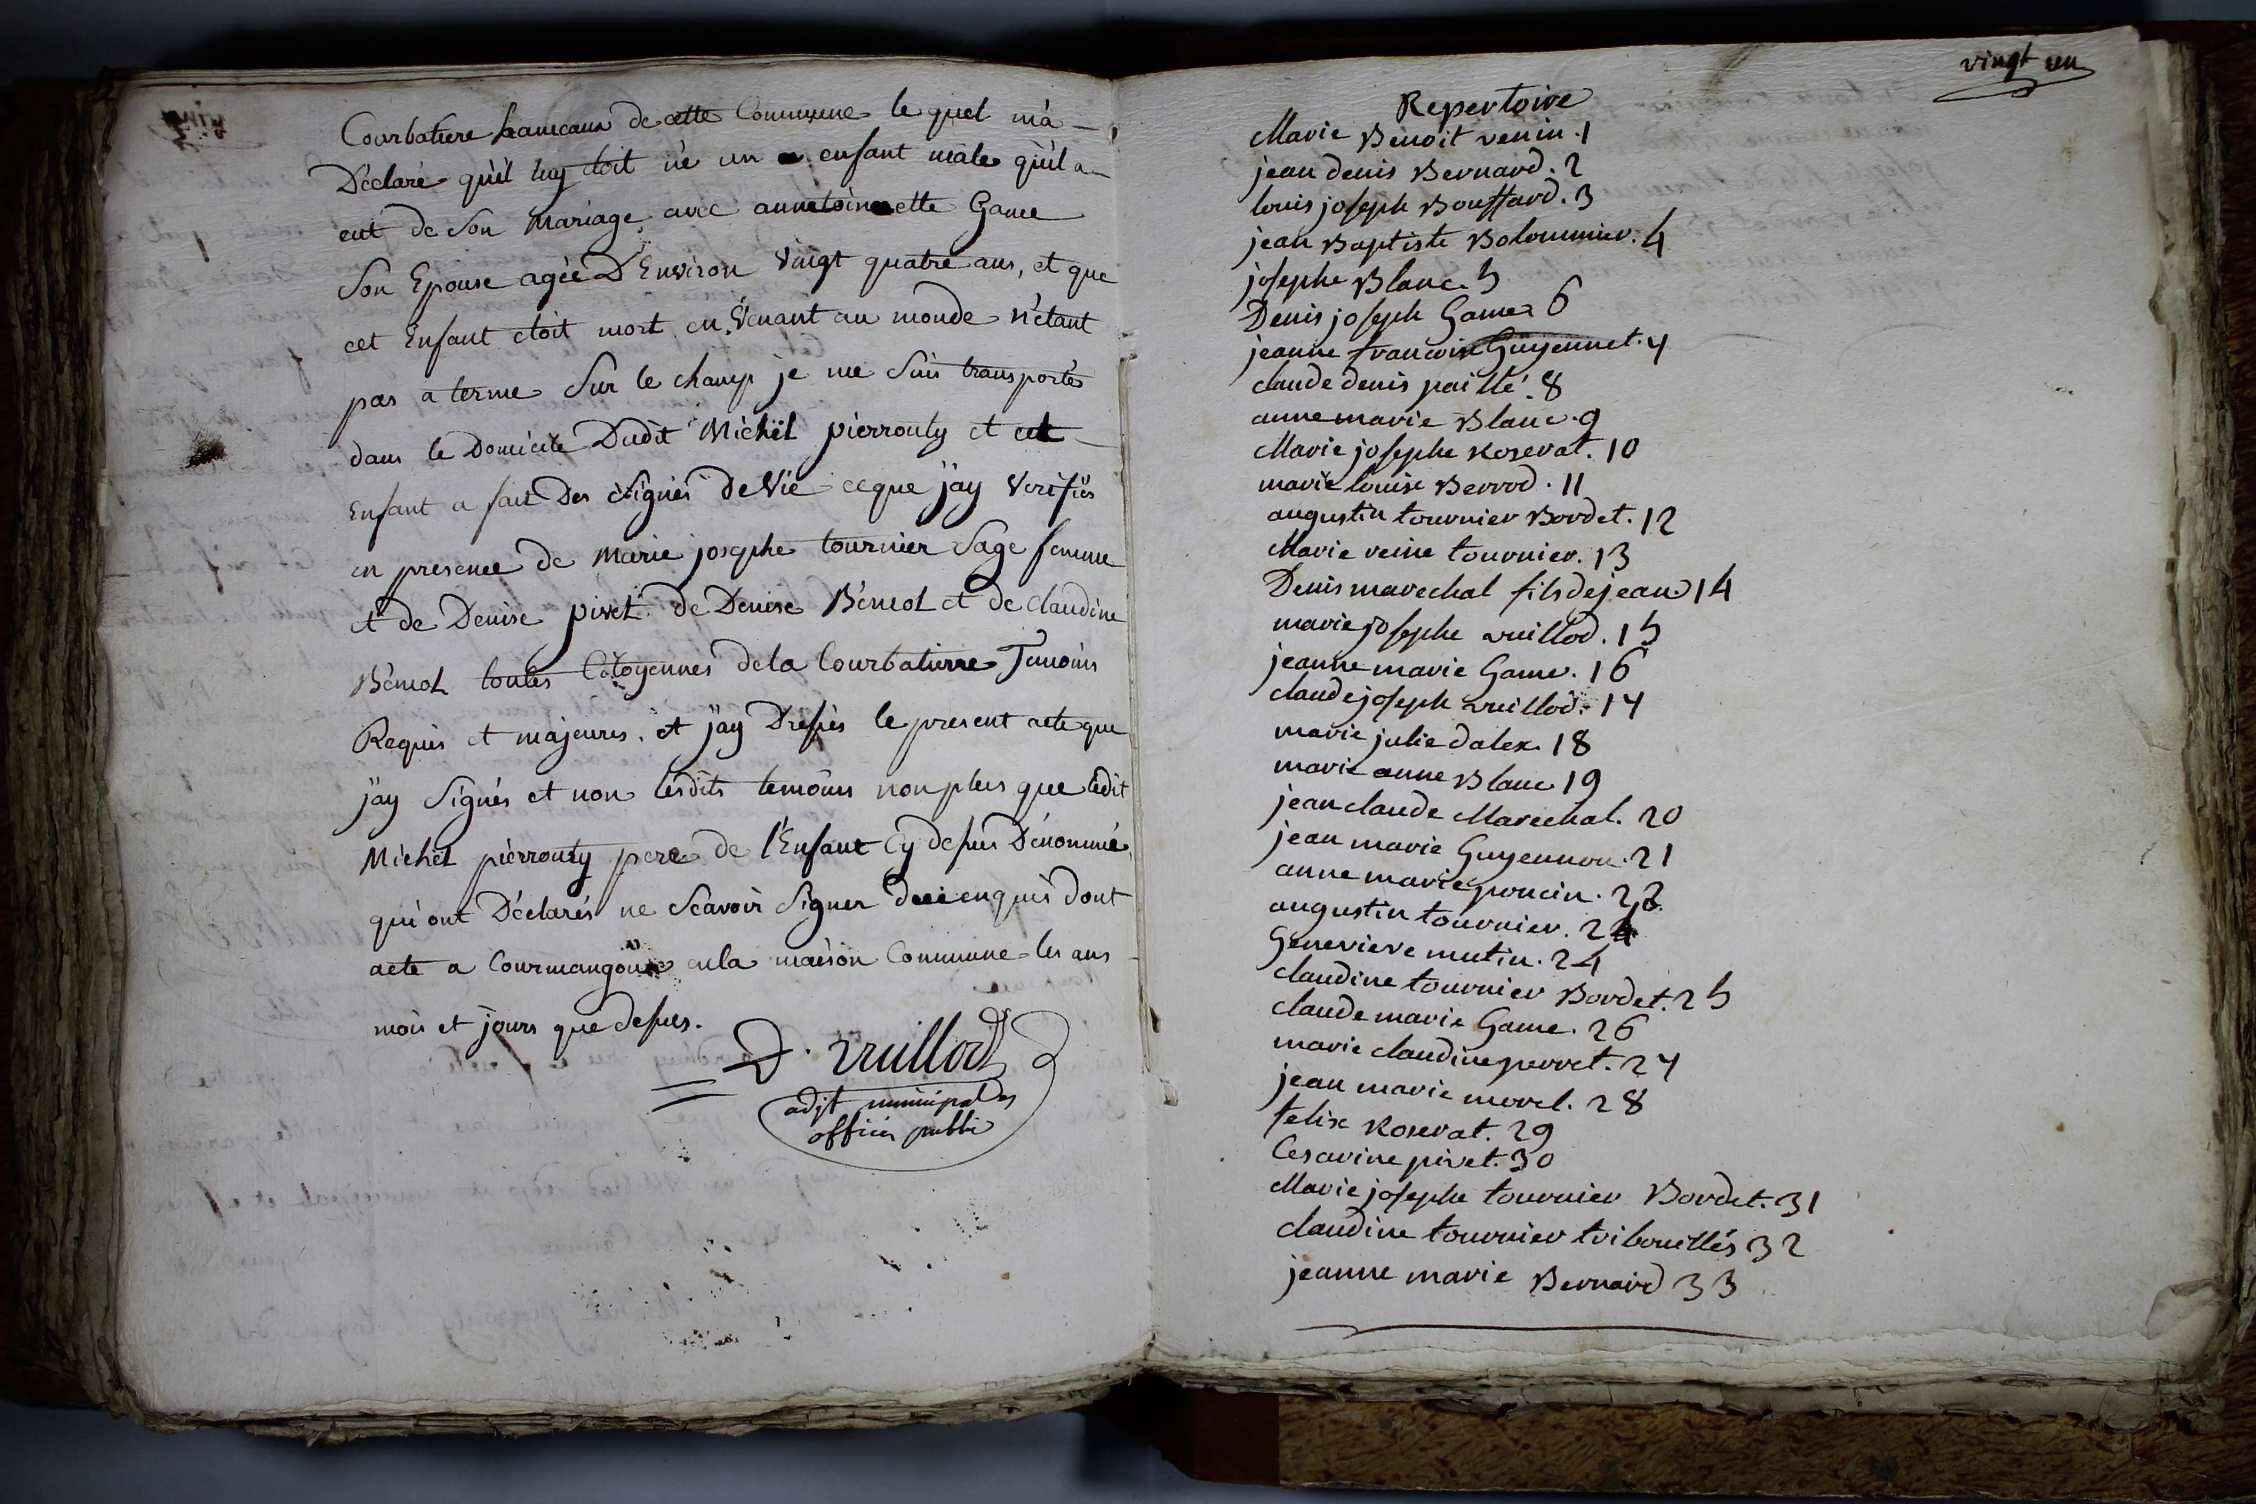 Courbatiere hameaux de cette Commune le quel m'a
Déclaré qu'il luy etoit né un enfant male qu'il a
eut de Son Mariage avec annetoinette Game
Son Epouse agée D'Environ Vingt quatre ans, et que
cet Enfant etoit mort en Venant au monde n'étant
pas a terme Sur le champ je me Suis transportés
dans le Domicile Dudit Michel pierrouty et cet
Enfant a fait Des Signes de Vie ce que j'ay Verifiés
en presence de Marie josephe tournier Sage femme
et de Denise pivet de Denise Bémol et de Claudine
Bémol toutes Citoyennes dela Courbatierre Temoins
Requis et majeures, et j'ay Dressés le present acte que
j'ay Signés et non lesdits temoins non plus que ledit
Michel pierrouty pere de l'Enfant Cy dessus Dénommé
qui ont Déclarés ne Scavoir Signer de ce enquis dont
acte a Courmangoux en la maison Commune les ans
mois et jours que dessus.
D. Vuillod
adjt municipal
officier public
vingt un
Repertoire
Marie Benoit venin. 1
jean denis Bernard. 2
louis joseph Bouffard. 3
jean Baptiste Bolommier. 4
josephe Blanc. 5
Denis joseph Game 6
jeanne francoise Guyennet. 7
claude denis paillé. 8
anne marie Blanc. 9
Marie josephe Roserat. 10
marie louise Berrod. 11
augustin tournier Bordet. 12
Marie reine tournier. 13
Denis marechal fils de jean 14
marie josephe vuillod. 15
jeanne marie Game. 16
claude joseph vuillod. 17
marie julie dalex. 18
marie anne Blanc 19
jean claude Marechal. 20
jean marie Guyennon. 21
anne marie poncin. 22
augustin tournier. 23
Genevieve mutin. 24
claudine tournier Bordet. 25
claude marie Game. 26
marie claudine perret. 27
jean marie morel. 28
felix Roserat. 29
Cesarine pivet. 30
Marie josephe tournier Bordet. 31
claudine tournier tribouillés 32
jeanne marie Bernard 33